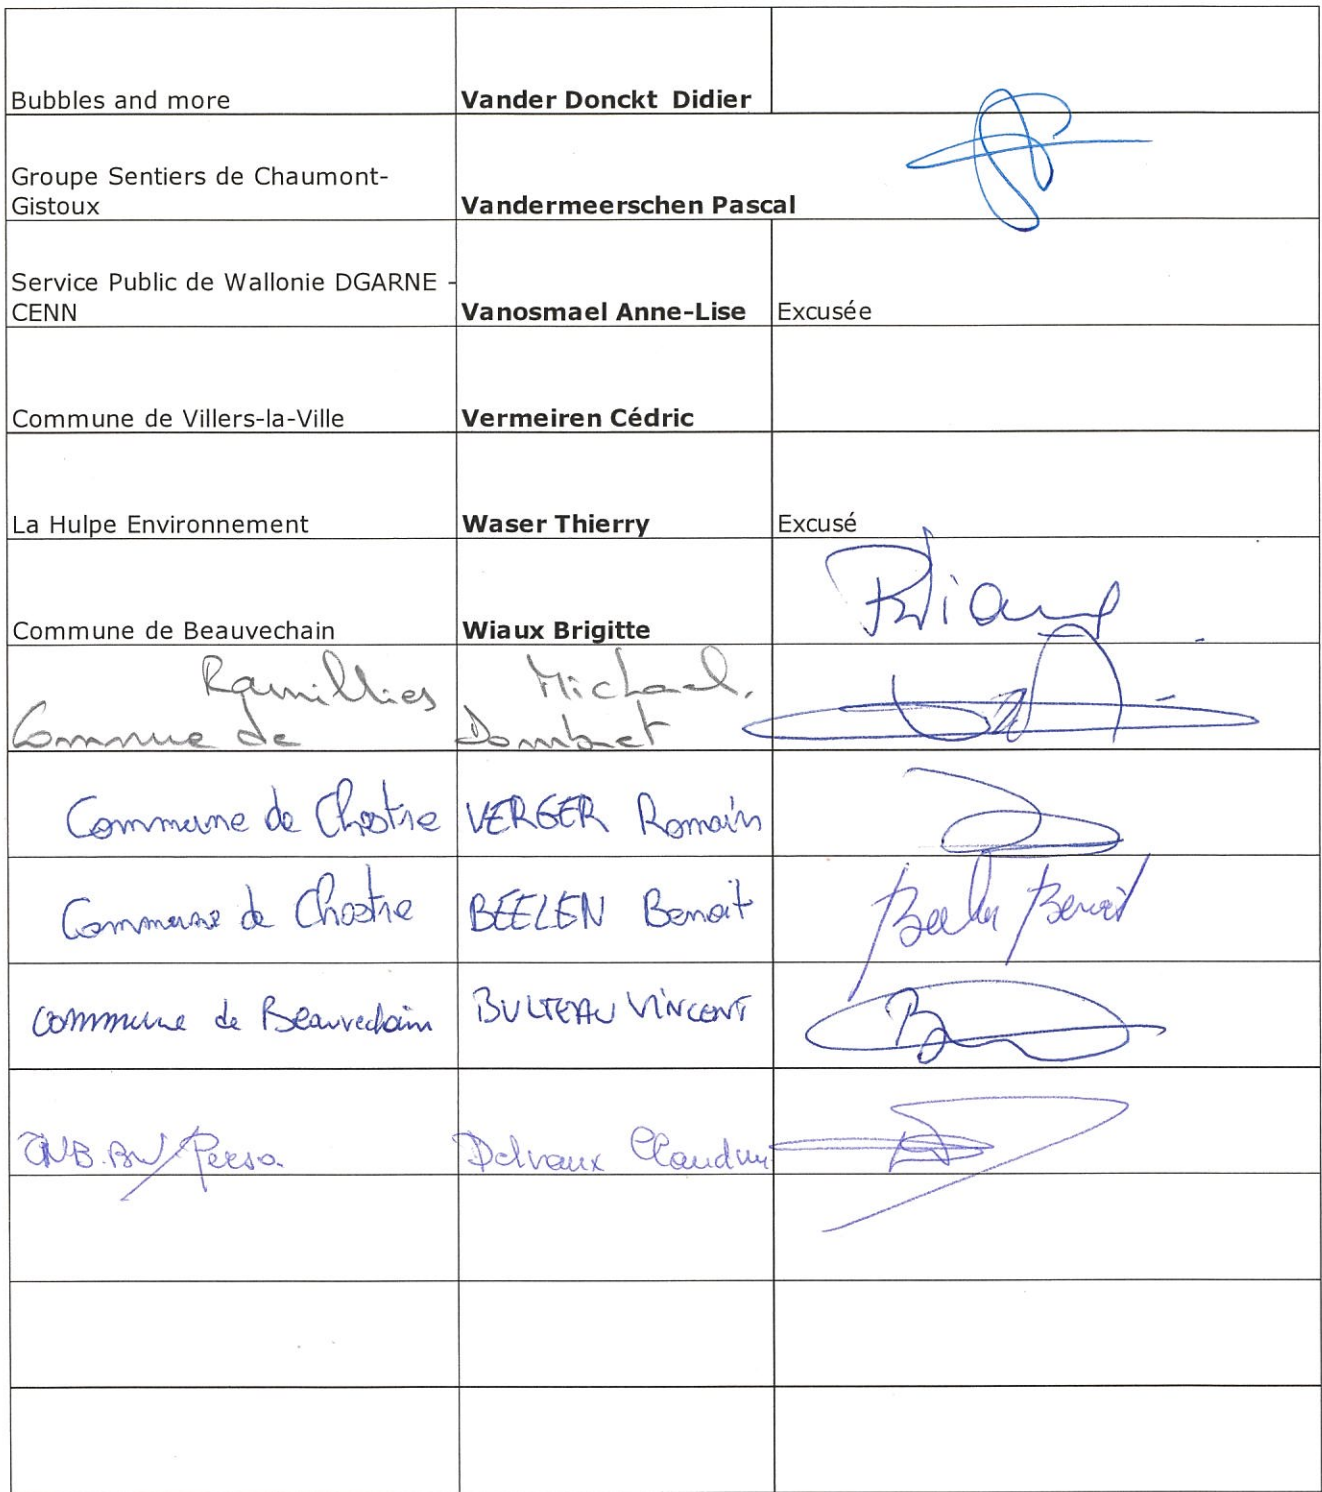 Bubbles and more Vander Donckt Didier
Groupe Sentiers de Chaumont-
Gistoux Vandermeerschen Pascal
Service Public de Wallonie DGARNE -
CENN Vanosmael Anne-Lise Excusée
Commune de Villers-la-Ville Vermeiren Cédric
La Hulpe Environnement Waser Thierry Excusé
Commune de Beauvechain Wiaux Brigitte
Ramillies Michael.
Commune de
Commune de Chastre VERGER Romain
Commune de Chastre BEELEN Benoit Benoit
commune de Beauvechain BULTEAU VINCENT
Delvaux